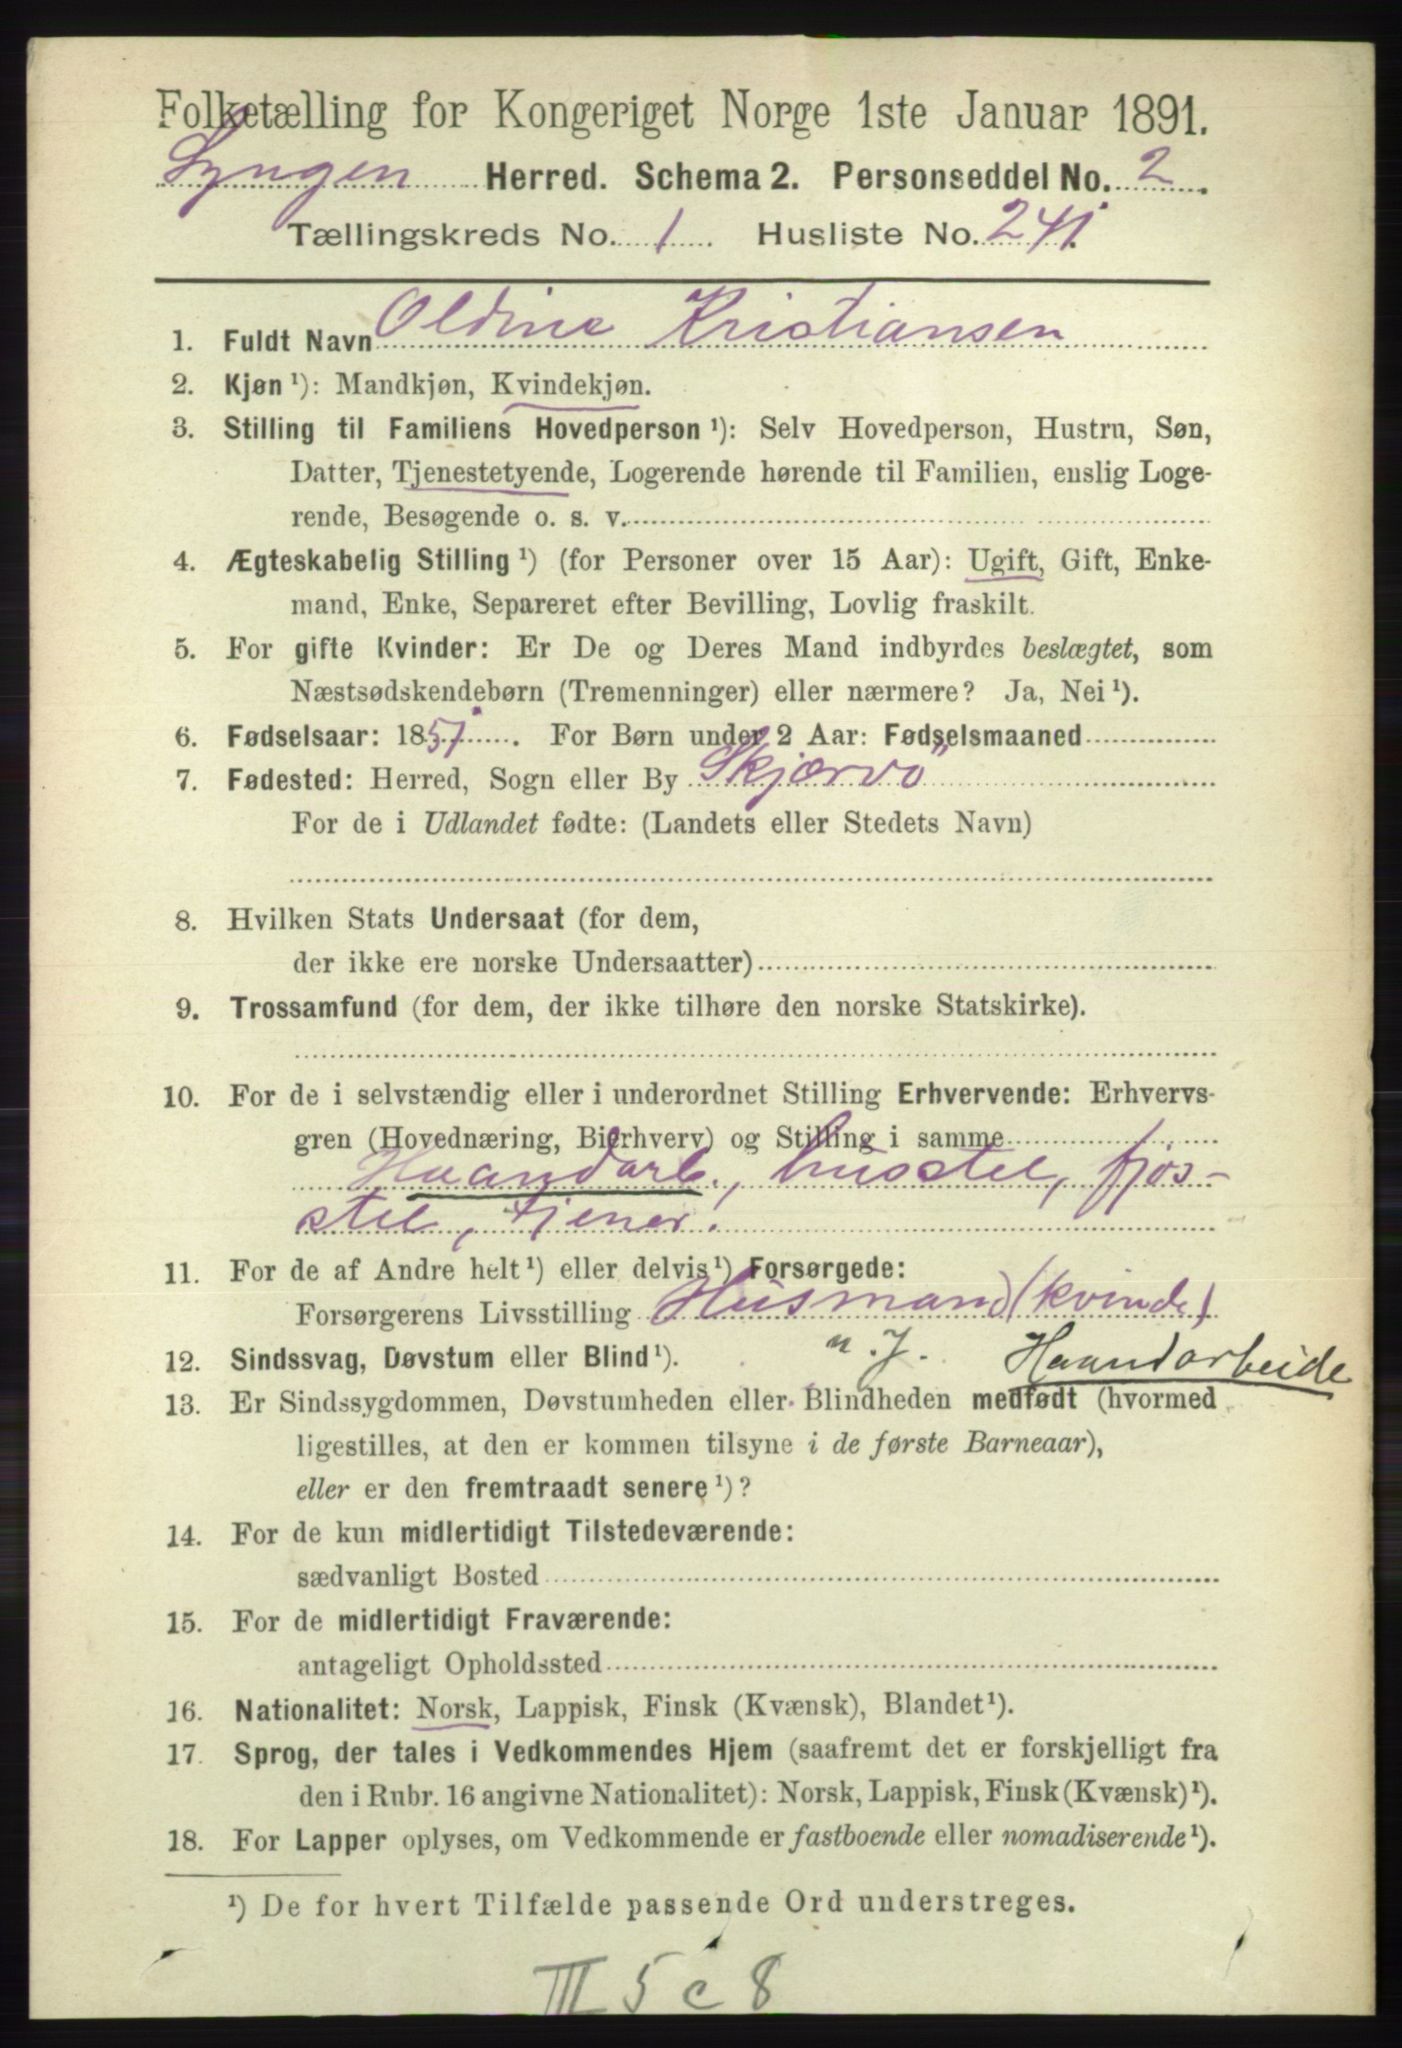 Folketælling for Kongeriget Norge 1ste Januar 1891.
Lyngen Herred. Schema 2. Personseddel No. 2.
Tællingskreds No. 1. Husliste No. 241.
1. Fuldt Navn Oldine Kristiansen
2. Kjøn ¹): Mandkjøn, Kvindekjøn.
3. Stilling til Familiens Hovedperson ¹): Selv Hovedperson, Hustru, Søn,
Datter, Tjenestetyende, Logerende hørende til Familien, enslig Loge-
rende, Besøgende o. s. v.
4. Ægteskabelig Stilling ¹) (for Personer over 15 Aar): Ugift, Gift, Enke-
mand, Enke, Separeret efter Bevilling, Lovlig fraskilt.
5. For gifte Kvinder: Er De og Deres Mand indbyrdes beslægtet, som
Næstsødskendebørn (Tremenninger) eller nærmere? Ja, Nei ¹).
6. Fødselsaar: 1851. For Børn under 2 Aar: Fødselsmaaned
7. Fødested: Herred, Sogn eller By Skjærvö
For de i Udlandet fødte: (Landets eller Stedets Navn)
8. Hvilken Stats Undersaat (for dem,
der ikke ere norske Undersaatter)
9. Trossamfund (for dem, der ikke tilhøre den norske Statskirke).
10. For de i selvstændig eller i underordnet Stilling Erhvervende: Erhvervs-
gren (Hovednæring, Bierhverv) og Stilling i samme
Haandarb., husstel, fjös-
stel, tjener.
11. For de af Andre helt ¹) eller delvis ¹) Forsørgede:
Forsørgerens Livsstilling Husmand (kvinde)
12. Sindssvag, Døvstum eller Blind ¹). n. J. Haandarbeide
13. Er Sindssygdommen, Døvstumheden eller Blindheden medfødt (hvormed
ligestilles, at den er kommen tilsyne i de første Barneaar),
eller er den fremtraadt senere ¹)?
14. For de kun midlertidigt Tilstedeværende:
sædvanligt Bosted
15. For de midlertidigt Fraværende:
antageligt Opholdssted
16. Nationalitet: Norsk, Lappisk, Finsk (Kvænsk), Blandet ¹).
17. Sprog, der tales i Vedkommendes Hjem (saafremt det er forskjelligt fra
den i Rubr. 16 angivne Nationalitet): Norsk, Lappisk, Finsk (Kvænsk) ¹).
18. For Lapper oplyses, om Vedkommende er fastboende eller nomadiserende ¹).
¹) De for hvert Tilfælde passende Ord understreges.
III 5 c 8